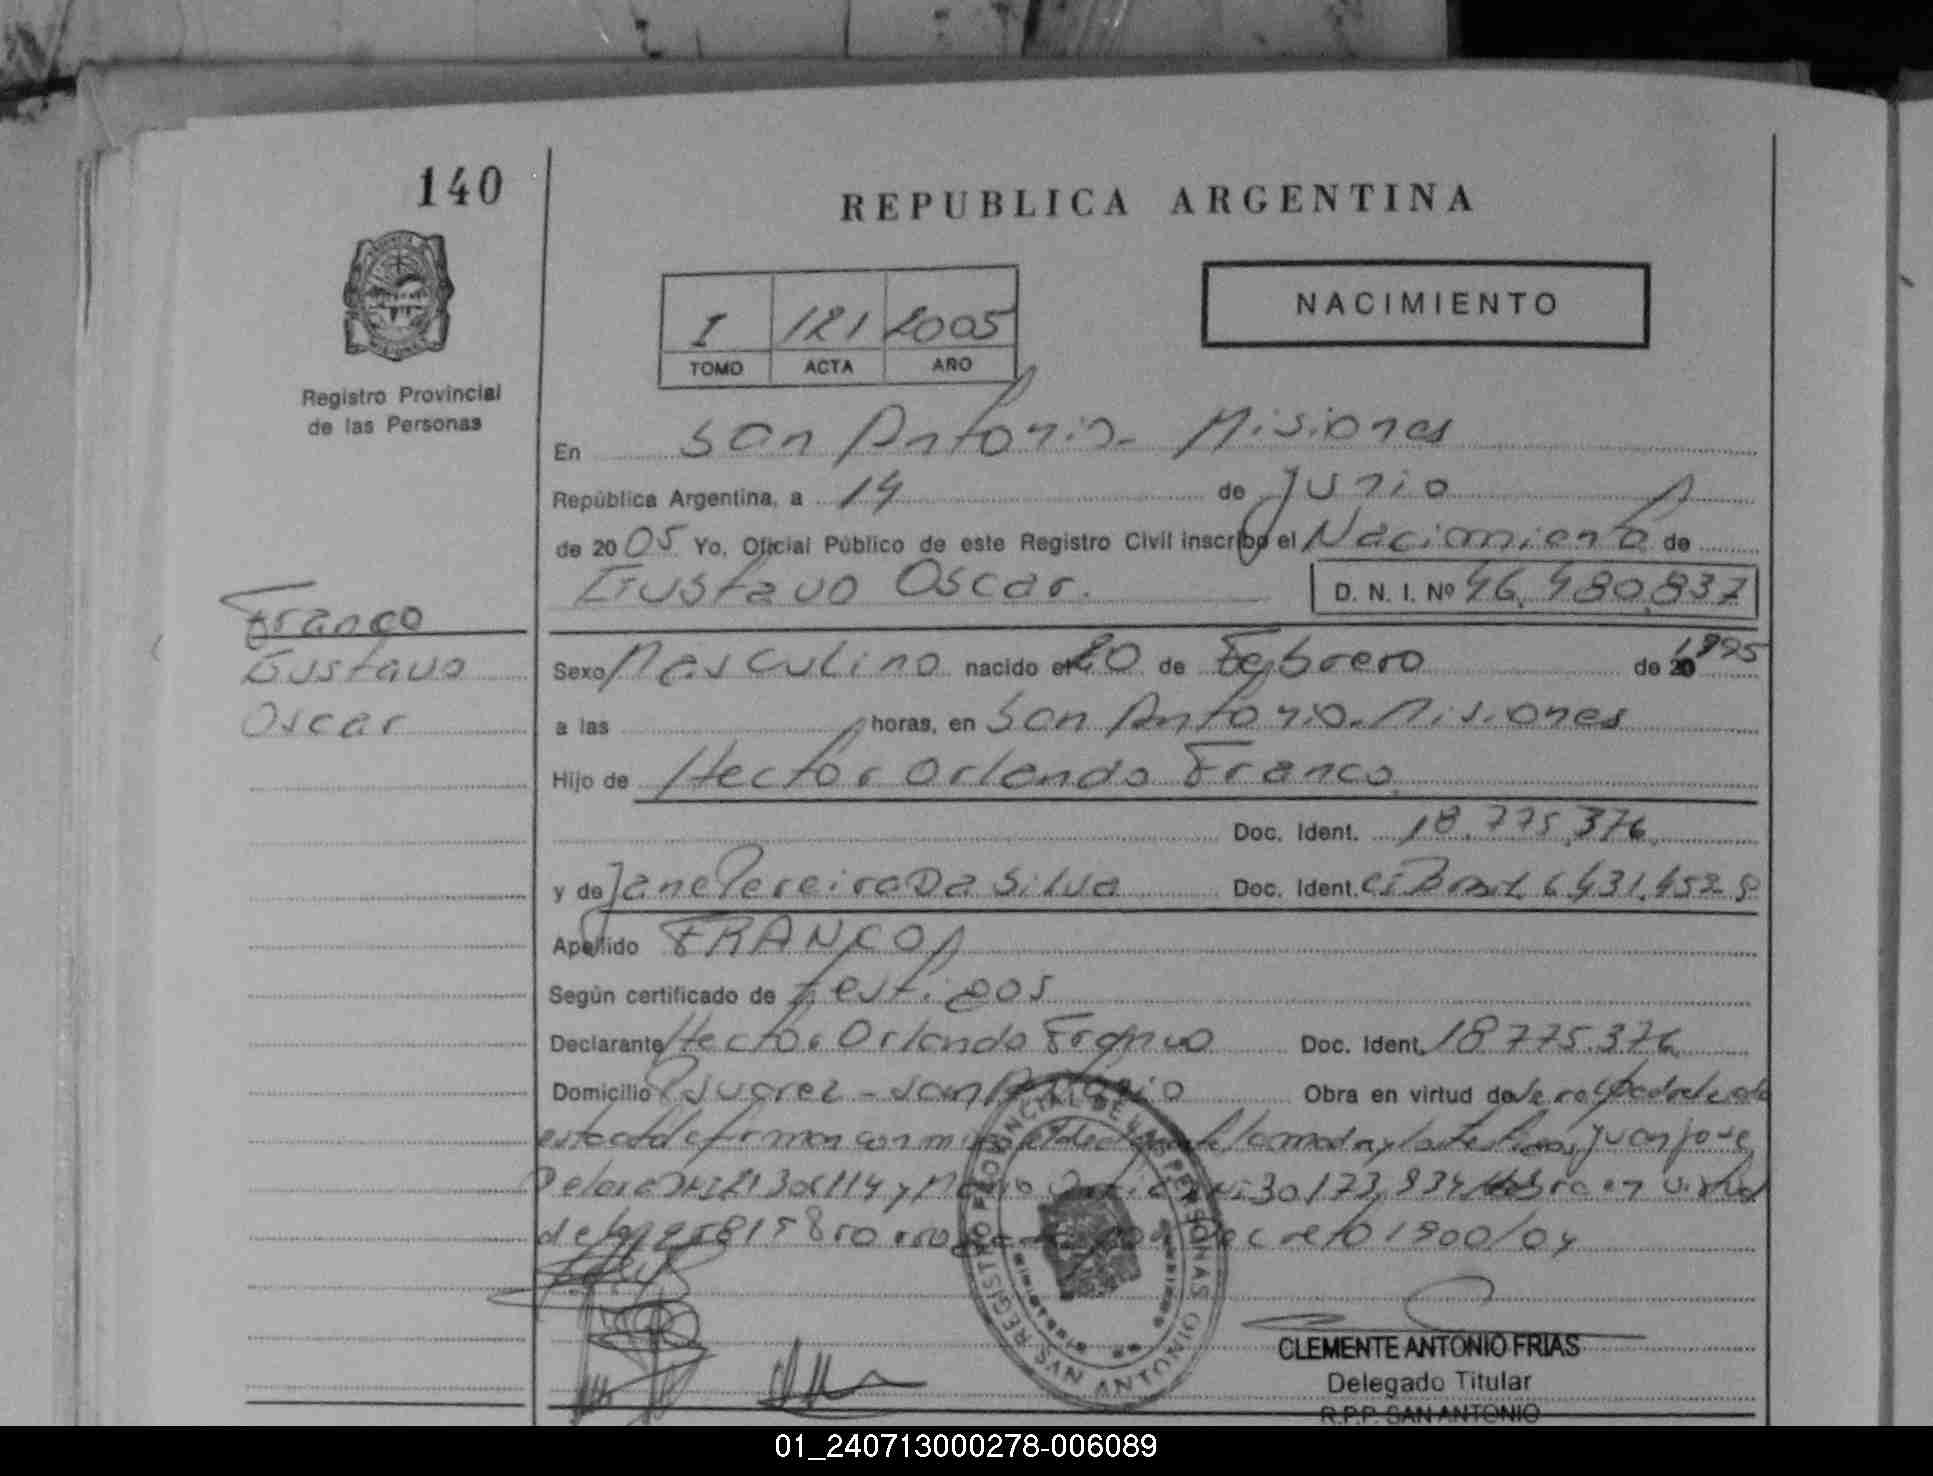 140
REPUBLICA ARGENTINA
NACIMIENTO
I 121 2005
TOMO ACTA AÑO
Registro Provincial
de las Personas
En San Antonio - Misiones
República Argentina, a 14 de Junio
de 2005 Yo, Oficial Público de este Registro Civil inscribo el Nacimiento de
Gustavo Oscar. D. N. I. Nº 46.480.837
Franco
Gustavo
Oscar
Sexo Masculino nacido el 20 de Febrero de 20 1995
a las horas, en San Antonio - Misiones
Hijo de Hector Orlando Franco
Doc. Ident. 18.775.376
y de Jane Pereira Da Silva Doc. Ident. CI Brasil 6.431.452 8
Apellido FRANCO
Según certificado de testigos
Declarante Hector Orlando Franco Doc. Ident. 18.775.376
Domicilio Suarez - San Antonio Obra en virtud de
esta acta firman conmigo el declarante la madre y los testigos Juan Jose
DNI y DNI 30.173.934 obra en virtud
de ley 25819 Decreto 1900/04
REGISTRO PROVINCIAL DE LAS PERSONAS
SAN ANTONIO
CLEMENTE ANTONIO FRIAS
Delegado Titular
R.P.P. SAN ANTONIO
01_240713000278-006089